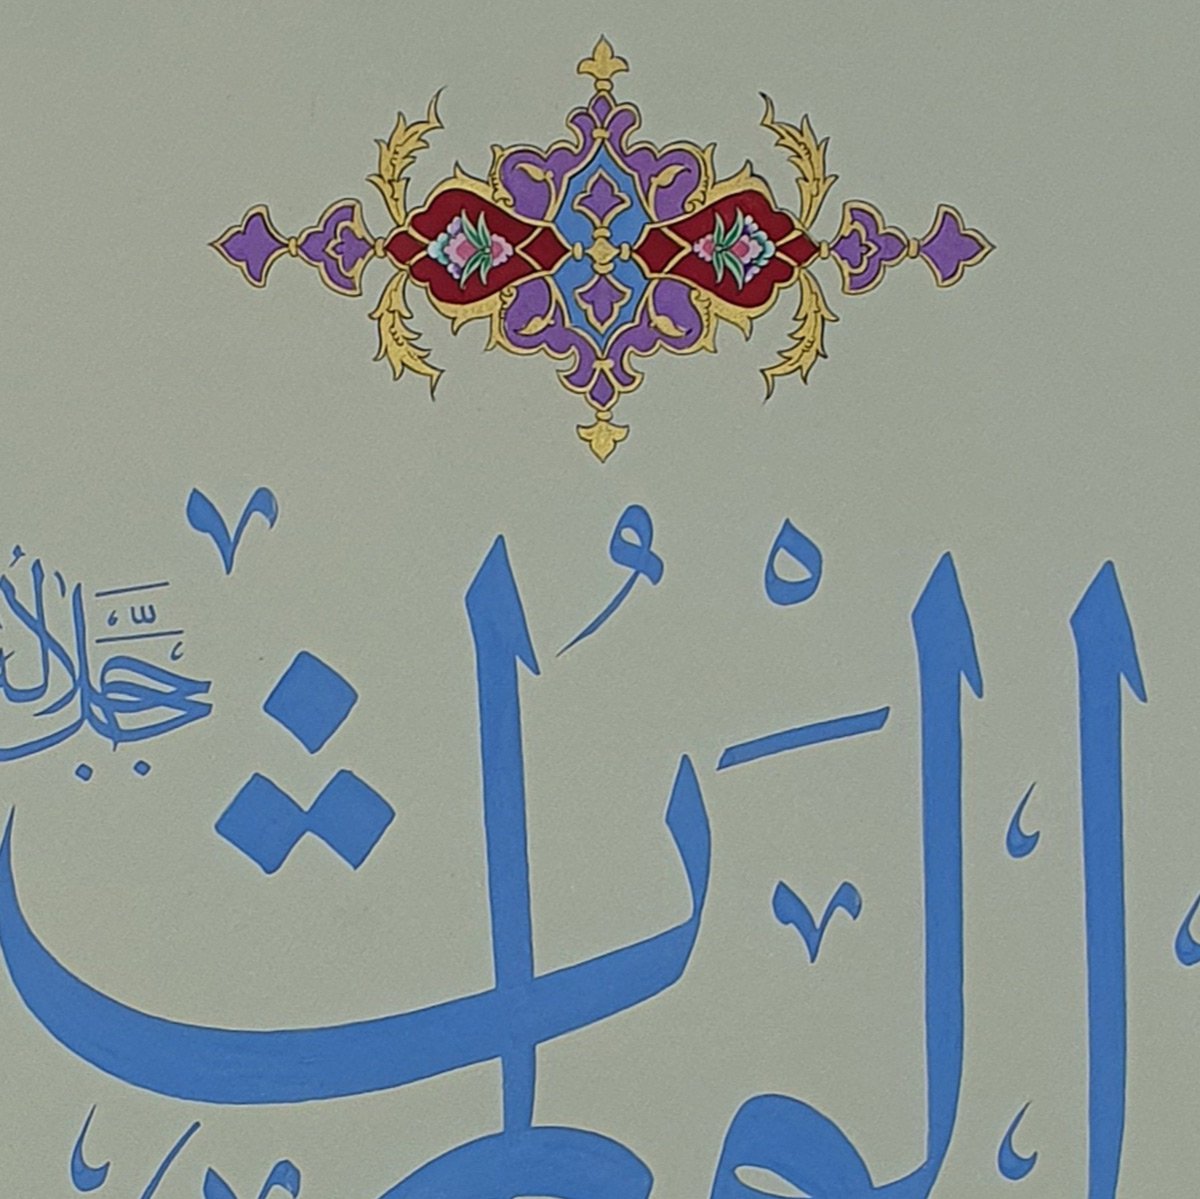 الْوَارِثُ
جل جلاله